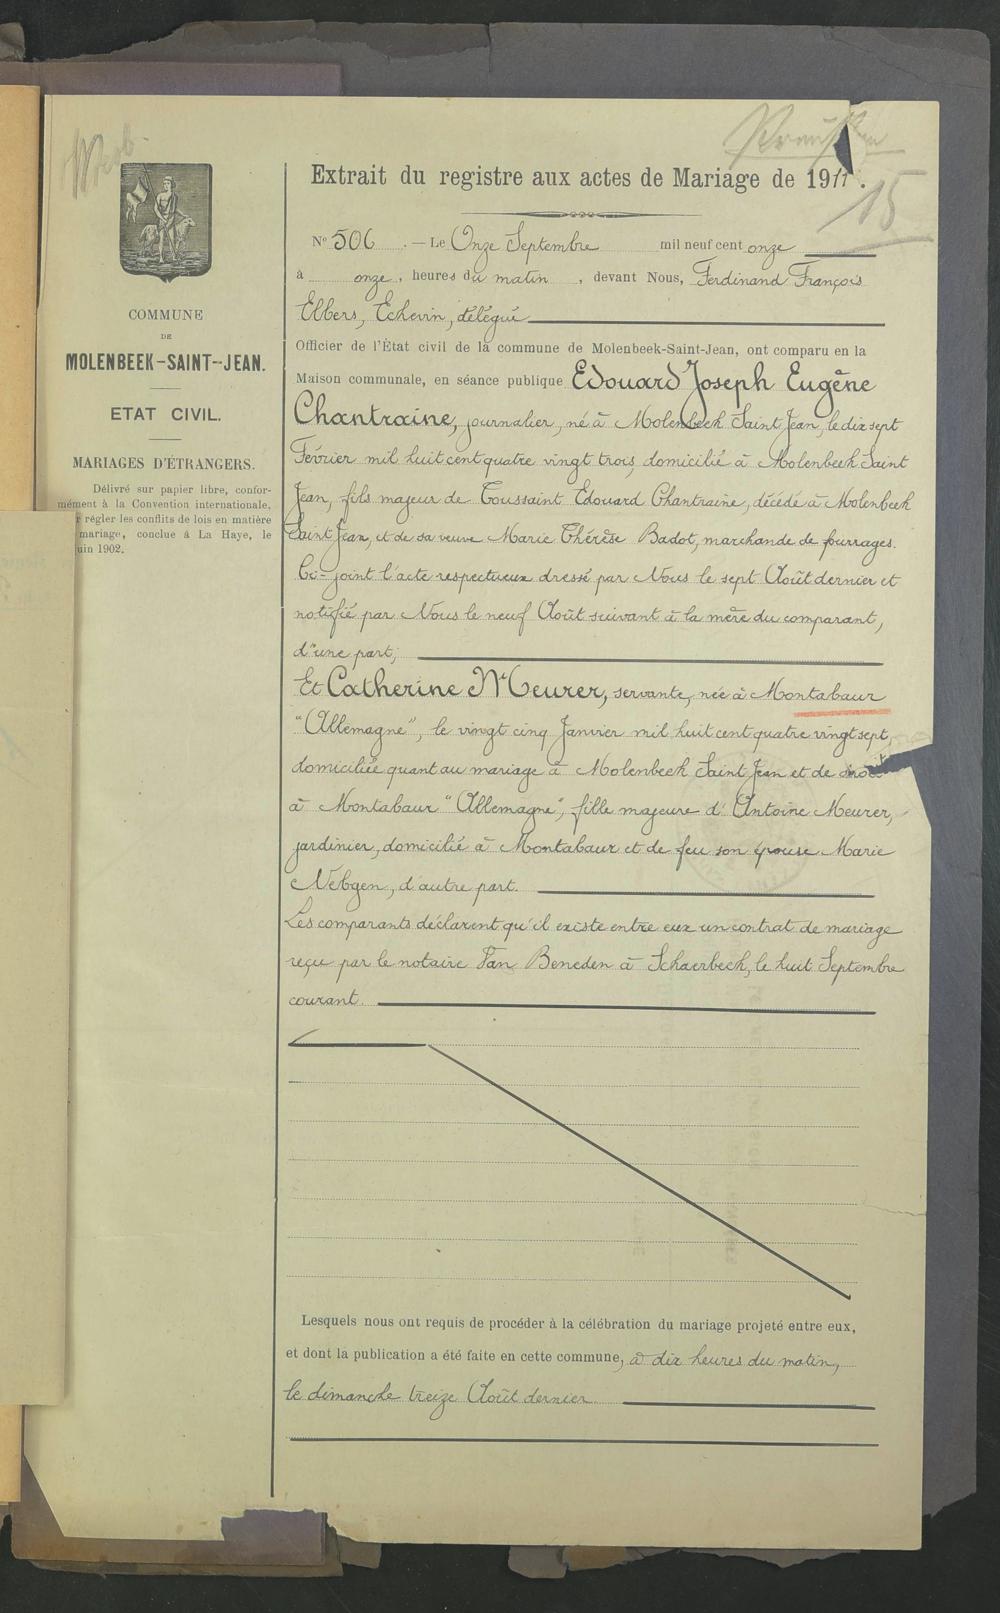 Preußen
15
COMMUNE
DE
MOLENBEEK-SAINT-JEAN.
ETAT CIVIL.
MARIAGES D'ÉTRANGERS.
Délivré sur papier libre, confor-
mément à la Convention internationale,
r régler les conflits de lois en matière
mariage, conclue à La Haye, le
uin 1902.
Extrait du registre aux actes de Mariage de 1911.
N° 506. — Le Onze Septembre mil neuf cent onze
à onze, heures du matin, devant Nous, Ferdinand François
Elbers, Echevin, délégué
Officier de l'État civil de la commune de Molenbeek-Saint-Jean, ont comparu en la
Maison communale, en séance publique Edouard Joseph Eugène
Chantraine, journalier, né à Molenbeek Saint Jean, le dix sept
Février mil huit cent quatre vingt trois, domicilié à Molenbeek Saint
Jean, fils majeur de Toussaint Edouard Chantraine, décédé à Molenbeek
Saint Jean, et de sa veuve Marie Thérèse Badot, marchande de fourrages.
Ci-joint l'acte respectueux dressé par Nous le sept Août dernier et
notifié par Nous le neuf Août suivant à la mère du comparant,
d'une part;
Et Catherine Meurer, servante, née à Montabaur
"Allemagne", le vingt cinq Janvier mil huit cent quatre vingt sept,
domiciliée quant au mariage à Molenbeek Saint Jean et de droit
à Montabaur "Allemagne", fille majeure d'Antoine Meurer,
jardinier, domicilié à Montabaur et de feu son épouse Marie
Nebgen, d'autre part.
Les comparants déclarent qu'il existe entre eux un contrat de mariage
reçu par le notaire Van Beneden à Schaerbeek, le huit Septembre
courant.
Lesquels nous ont requis de procéder à la célébration du mariage projeté entre eux,
et dont la publication a été faite en cette commune, à dix heures du matin,
le dimanche treize Août dernier.